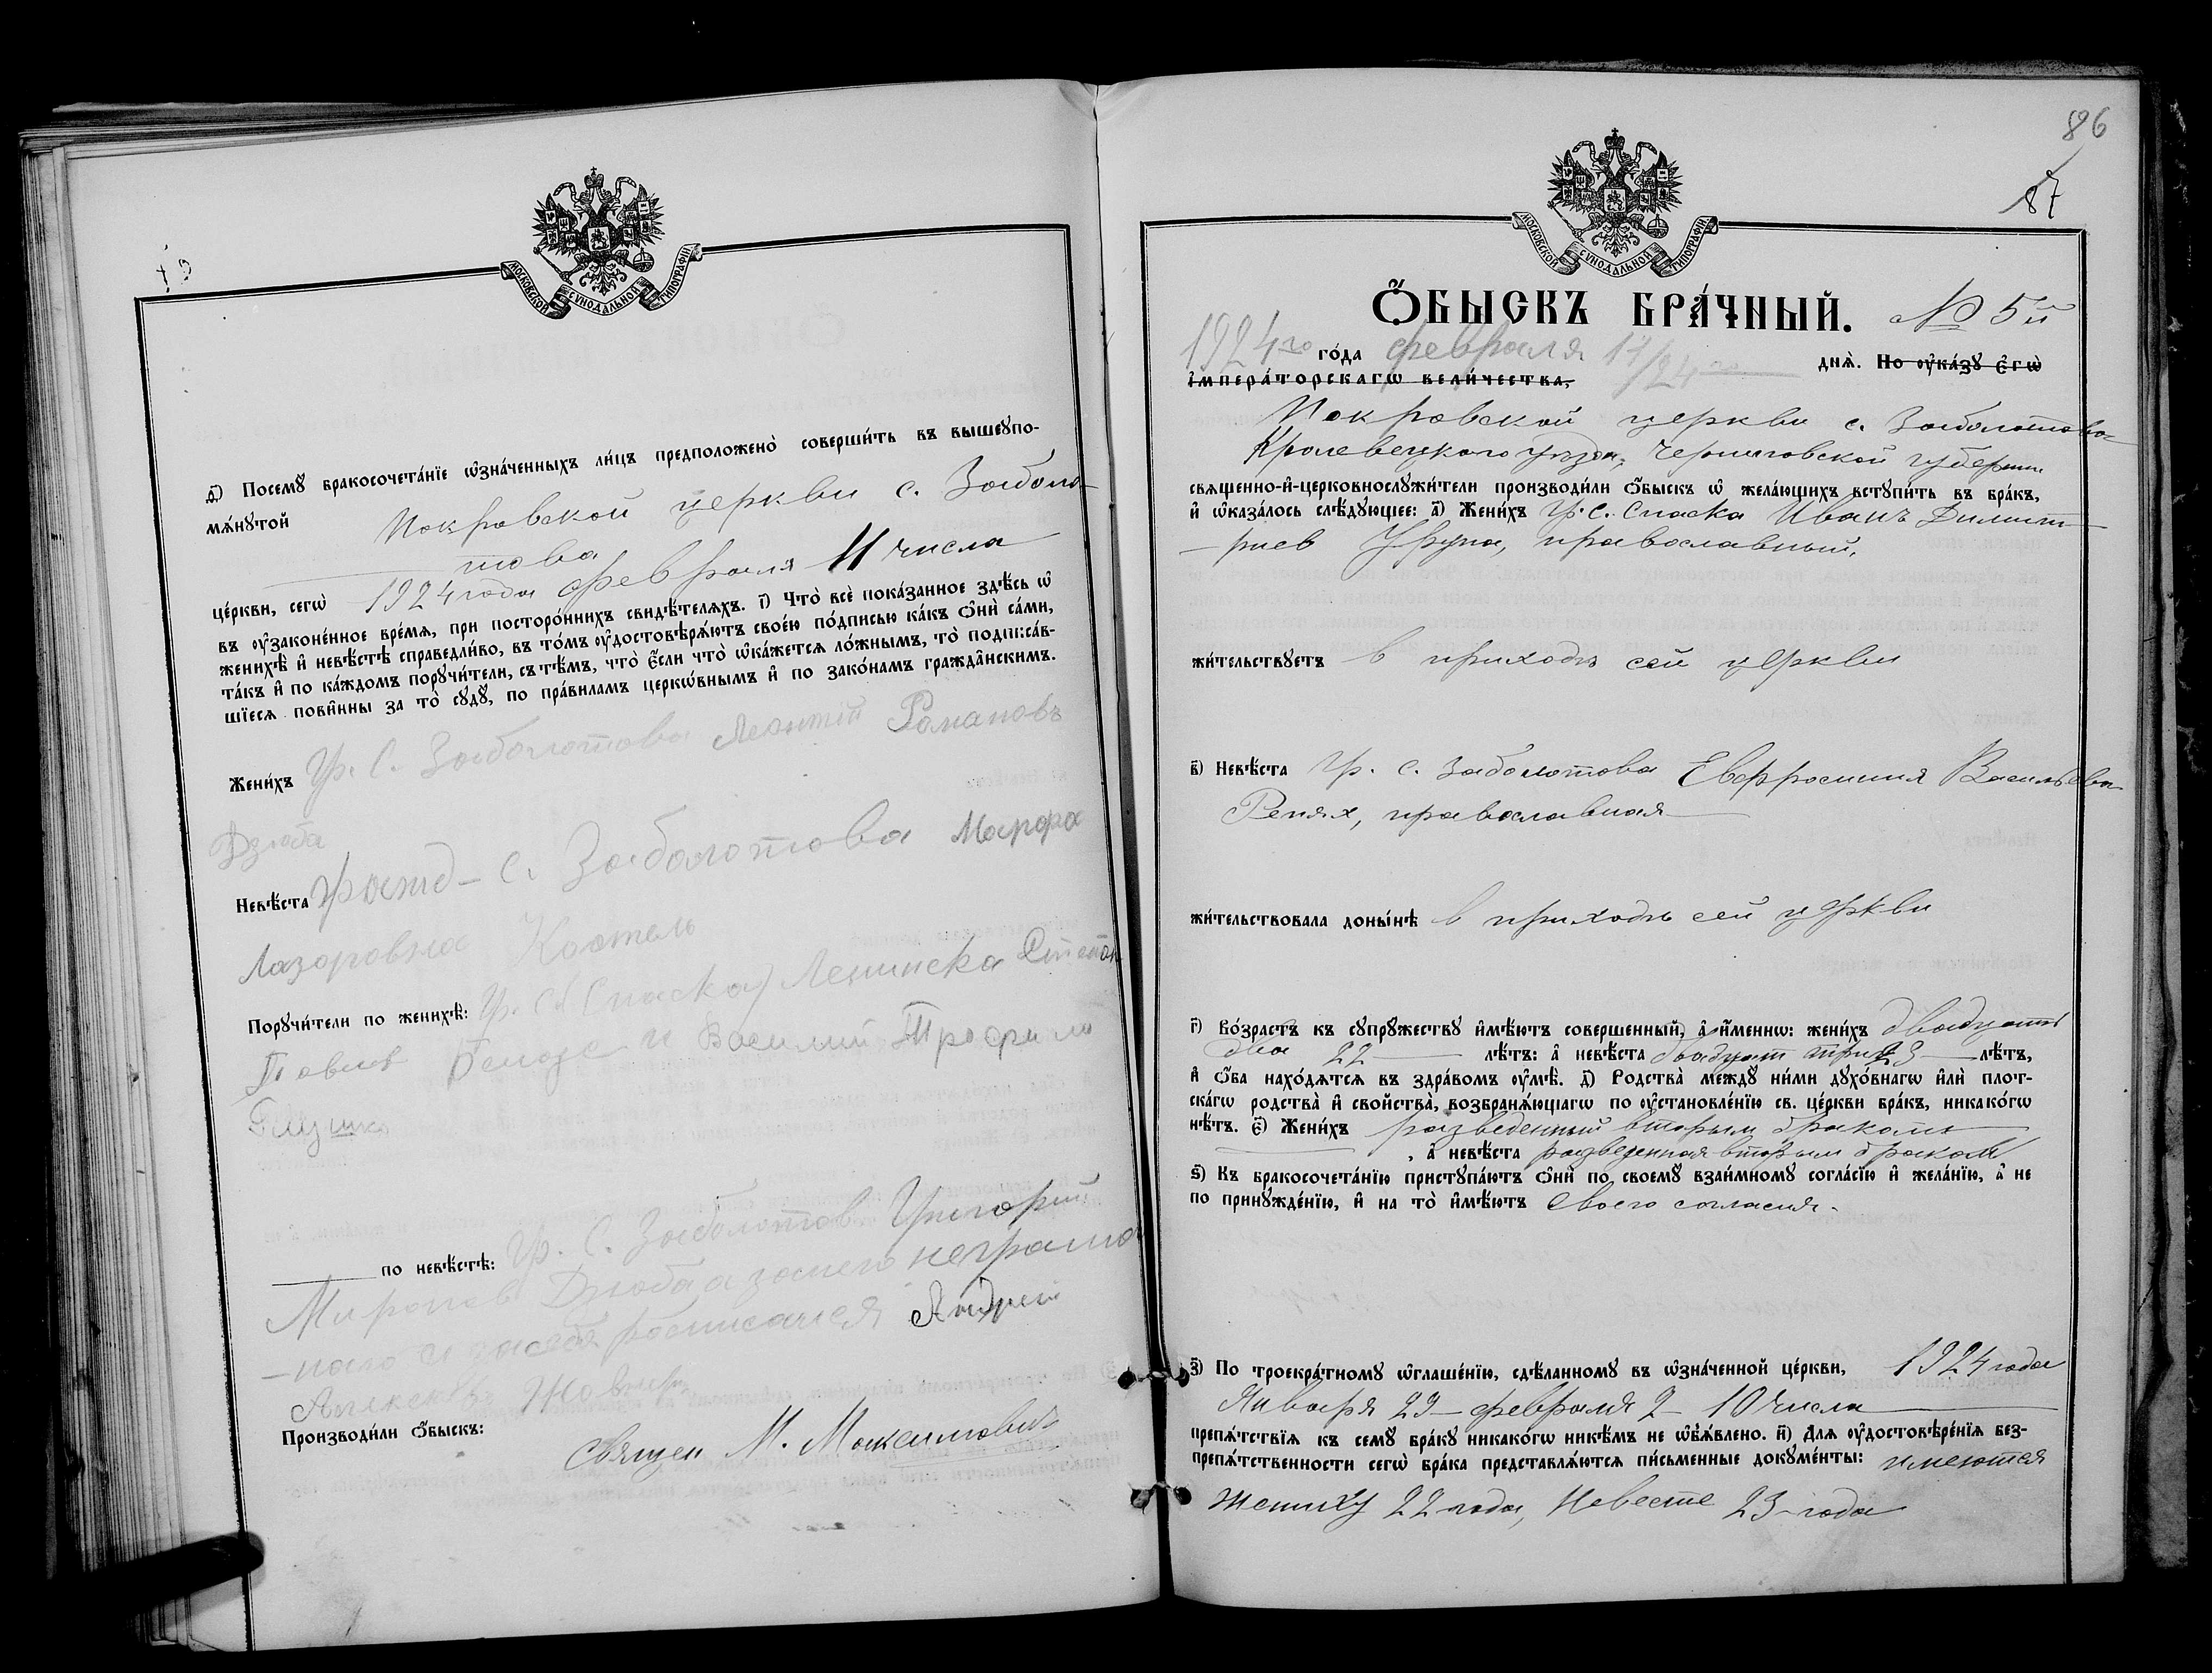 МОСКОВСКОЙ СѴНОДАЛЬНОЙ ТИПОГРАФІИ
д҃) Посемꙋ̀ бракосочета́нїе ѡ҆зна́ченныхъ ли́цъ предположено̀ соверши́ть въ вышеꙋпо-
мѧ́нꙋтой Покровской церкви с. Заболо-
това
це́ркви, сегѡ̀ 1924 года февраля 11 числа
въ ᲂу҆законе́нное вре́мѧ, при посторо́ннихъ свидѣ́телѧхъ. і҃) Что̀ всѐ пока́занное здѣ́сь ѡ҆
женихѣ̀ и҆ невѣ́стѣ справедли́во, въ то́мъ ᲂу҆достовѣрѧ́ютъ свое́ю по́дписью ка́къ ѻ҆нѝ са́ми,
та́къ и҆ по ка́ждомъ порꙋчи́тели, съ тѣ́мъ, что̀ є҆́сли что̀ ѡ҆ка́жетсѧ ло́жнымъ, то̀ подписа́в-
шїесѧ пови́нны за то̀ сꙋдꙋ̀, по пра́виламъ церкѡ́внымъ и҆ по зако́намъ гражда́нскимъ.
Жени́хъ Гр. С. Заболотова Леонтій Романовъ
Дзюба
Невѣ́ста Гражд- С. Заболотова Марфа
Лазоровна Костель
Порꙋчи́тели по женихѣ̀: Гр. С. (Спаска) Ленинска Степан
Павлов и Василий Трофимо
Глушко
по невѣ́стѣ: Гр. С. Заболотов Григорий
Миронов Дзюба а за него неграмо
-ного и за себя росписался Андрей
Алексеев
Производи́ли ѻ҆́быскъ: Священ М. Максимовичъ
86
87
МОСКОВСКОЙ СѴНОДАЛЬНОЙ ТИПОГРАФІИ
Ѻ҆́БЫСКЪ БРА́ЧНЫЙ. № 5й
1924го го́да февраля 11/24го днѧ̀. По ᲂу҆ка́зꙋ Є҆гѡ̀
І҆мпера́торскагѡ вели́чества,
Покровской церкви с. Заболотова
Кролевецкого уезда, Черниговской губернии
свѧще́нно-и҆-церковнослꙋжи́тели производи́ли ѻ҆́быскъ ѡ҆ жела́ющихъ встꙋпи́ть въ бра́къ,
и҆ ѡ҆каза́лось слѣ́дꙋющее: а҃) Жени́хъ Гр. с. Спаска Иванъ Димит-
-риев Журупа, православный,
жи́тельствꙋетъ в приходе сей церкви
в҃) Невѣ́ста Гр. с. Заболотова Евфросиния Васильева
Репях, православная
жи́тельствовала доны́нѣ в приходе сей церкви
г҃) Во́зрастъ къ сꙋпрꙋ́жествꙋ и҆мѣ́ютъ соверше́нный, а҆ и҆́меннѡ: жени́хъ двадцать
два 22 лѣ́тъ: а҆ невѣ́ста двадцат три 23 лѣ́тъ,
и҆ ѻ҆́ба нахо́дѧтсѧ въ здра́вомъ ᲂу҆мѣ̀. д҃) Родства̀ междꙋ̀ ни́ми дꙋхо́внагѡ и҆лѝ плот-
ска́гѡ родства̀ и҆ свойства̀, возбранѧ́ющагѡ по ᲂу҆становле́нїю св. це́ркви бра́къ, никако́гѡ
нѣ́тъ. є҃) Жени́хъ розведенный вторым браком
, а҆ невѣ́ста розведенная вторым браком
ѕ҃) Къ бракосочета́нїю пристꙋпа́ютъ ѻ҆нѝ по своемꙋ̀ взаи́мномꙋ согла́сїю и҆ жела́нїю, а҆ не
по принꙋжде́нїю, и҆ на то̀ и҆мѣ́ютъ своего согласия.
з҃) По троекра́тномꙋ ѡ҆глаше́нїю, сдѣ́ланномꙋ въ ѡ҆зна́ченной це́ркви, 1924 года
Января 29 - февраля 2 - 10 числа
препѧ́тствїѧ къ семꙋ̀ бра́кꙋ никако́гѡ никѣ́мъ не ѡ҆б̾ѧ́влено. и҃) Длѧ ᲂу҆достовѣре́нїѧ без-
препѧ́тственности сегѡ̀ бра́ка представлѧ́ютсѧ пи́сьменные докꙋме́нты: имеются
жениху 22 года, Невесте 23 года